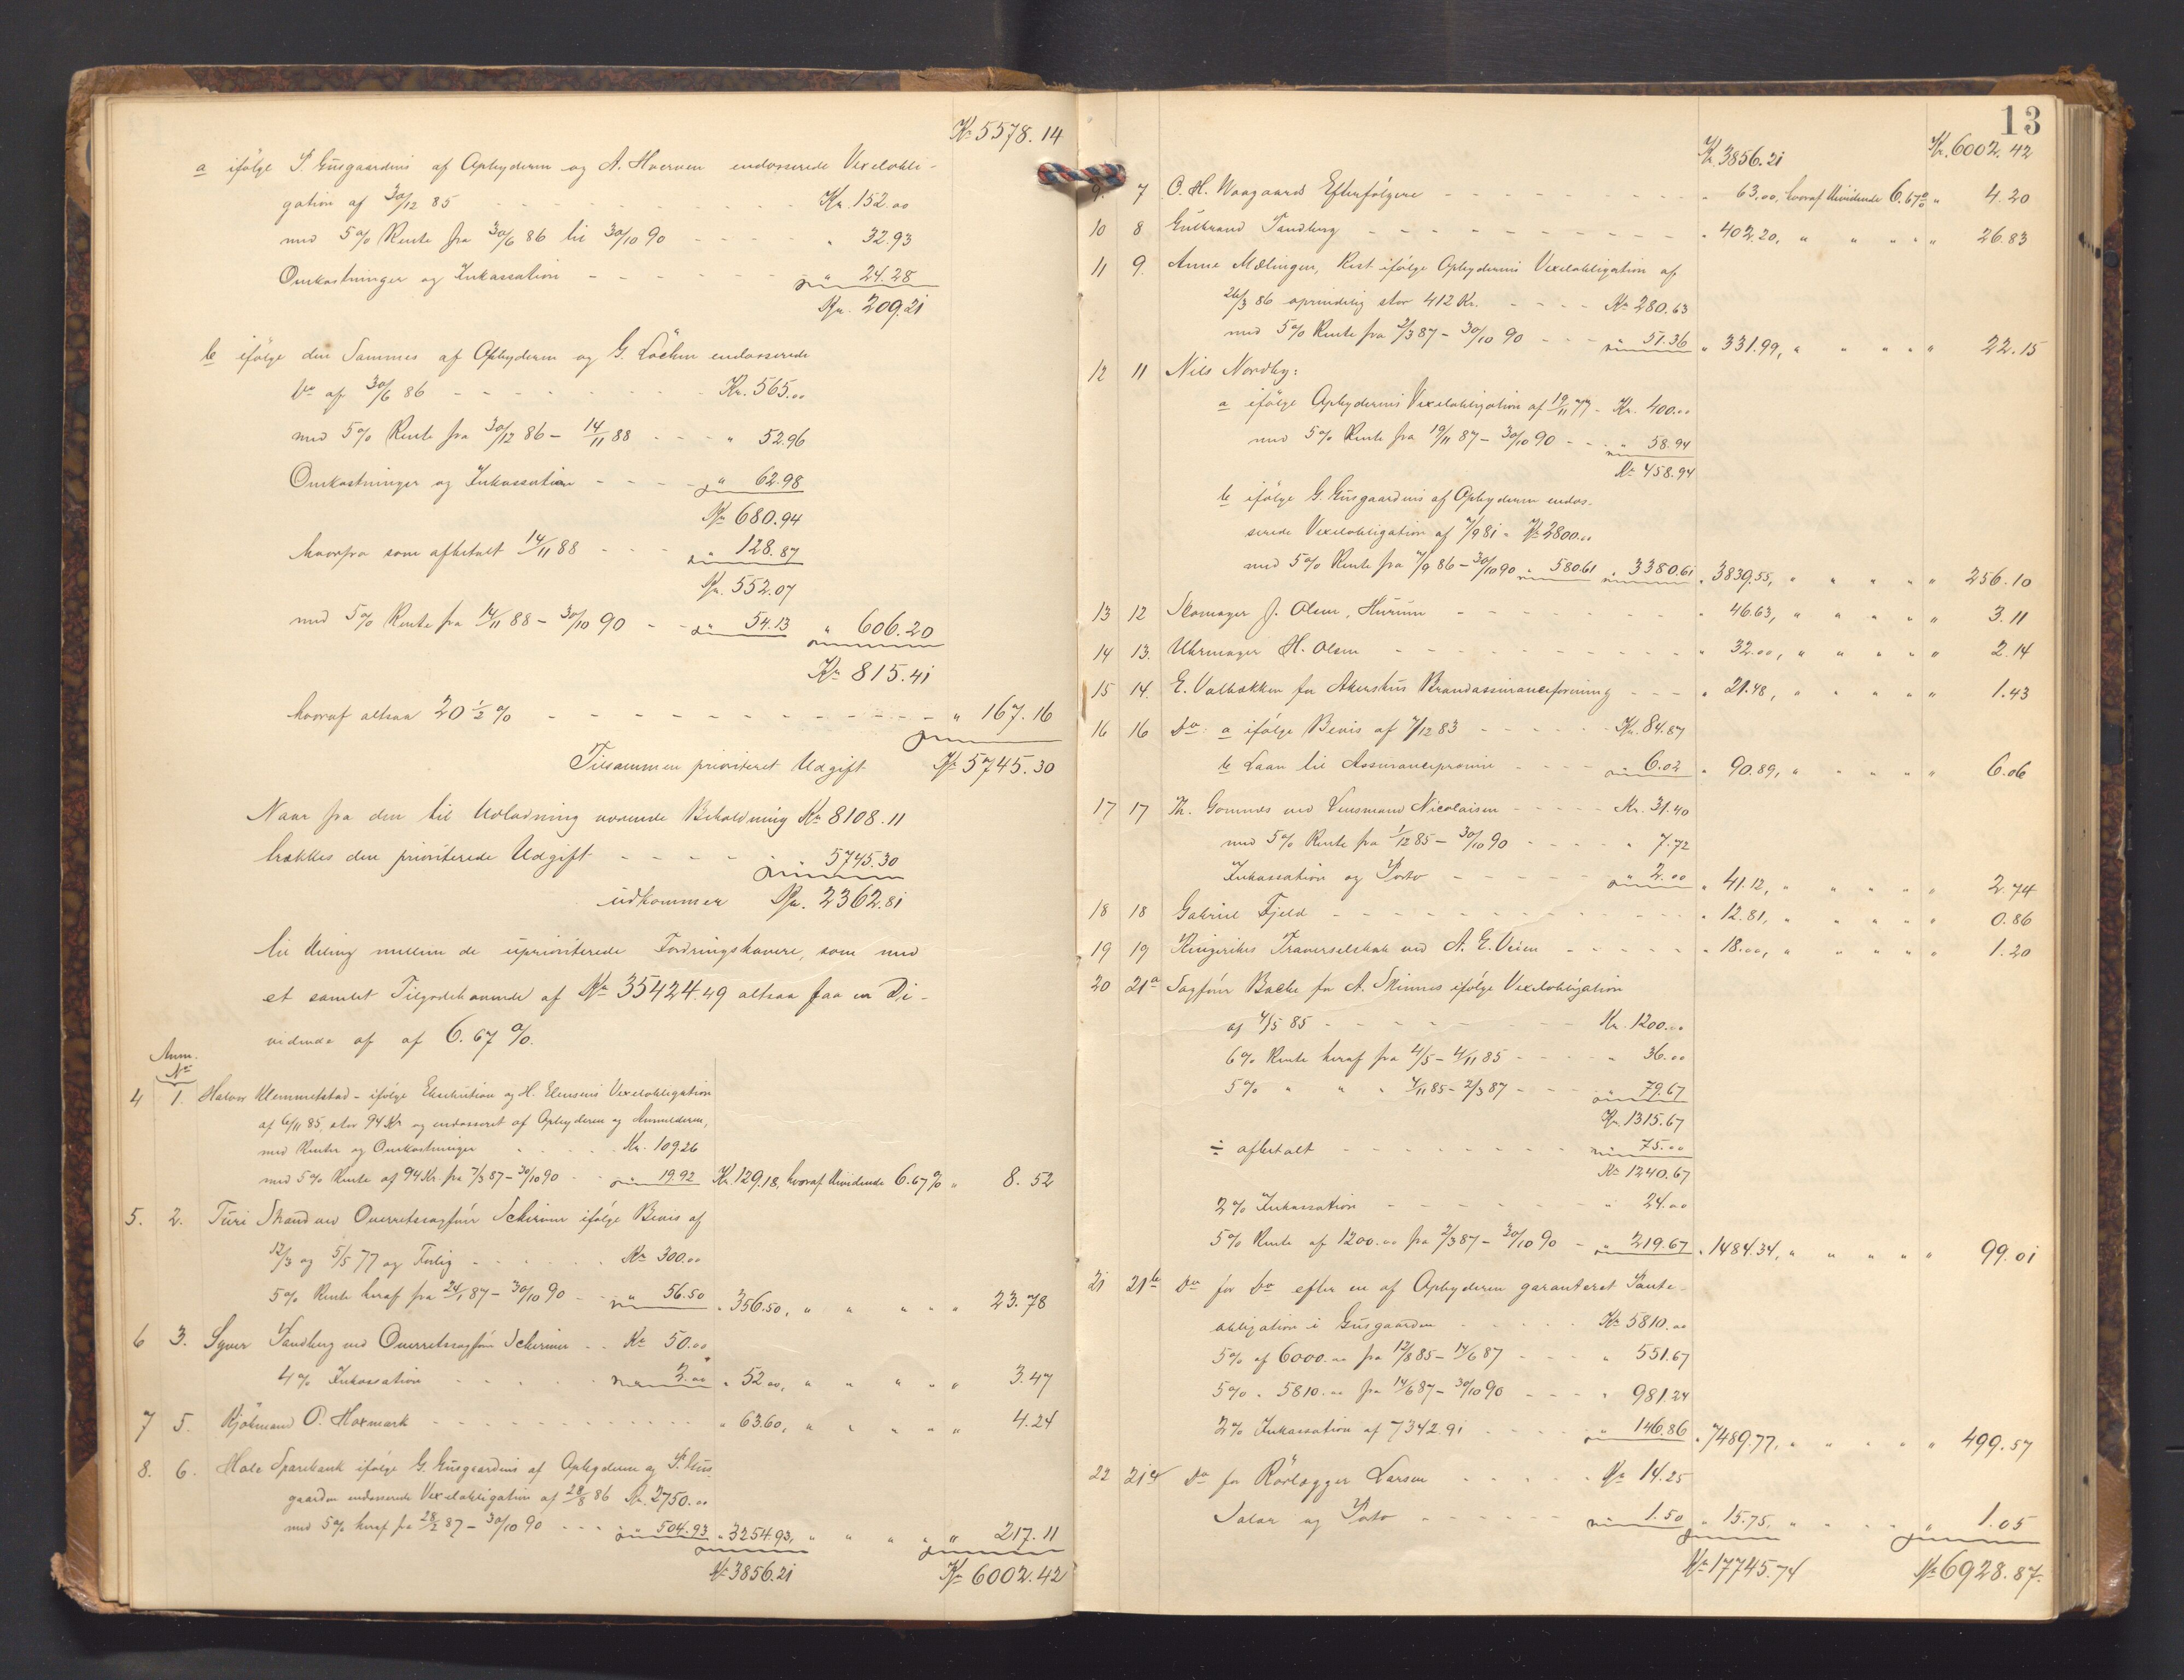 Kr 5578.14
a ifölge P. Gusgaardens af Opbyderen og A. Hverven endosserede Vexelobli-
gation af 30/12 85 - - - Kr. 152.00
med 5% Rente fra 30/6 86 til 30/10 90 - - - " 32.93
Omkostninger og Inkassation - - - " 24.28
Kr. 209.21
b ifölge den Sammes af Opbyderen og G. Löchen endosserede
Do af 30/6 86 - - - Kr. 565.00
med 5% Rente fra 30/12 86 - 14/11 88 - - - " 52.96
Omkostninger og Inkassation - - - " 62.98
Kr 680.94
hvorfra som afbetalt 14/11 88 - - - " 128.87
Kr. 552.07
med 5% Rente fra 14/11 88 - 30/10 90 - - " 54.13 " 606.20
Kr 815.41
hvoraf altsaa 20 1/2 % - - - " 167.16
Tilsammen prioriteret Udgift Kr 5745.30
Naar fra den til Udlodning værende Beholdning Kr 8108.11
trækkes den prioriterede Udgift - - - " 5745.30
udkommer Kr. 2362.81
til Deling mellem de uprioriterede Fordringshavere, som med
et samlet Tilgodehavende af Kr 35424.49 altsaa faa en Di-
vidende af af 6.67 %.
Anm.
No
4 1. Halvor Klemmetstad - ifölge Exekution og H. Elensens Vexelobligation
af 6/11 85, stor 94 Kr og endosseret af Opbyderen og Anmelderen,
med Renter og Omkostninger - - Kr. 109.26
med 5% Rente af 94 Kr. fra 7/3 87 - 30/10 90 - - " 19.92 Kr. 129.18, hvoraf Dividende 6.67% " 8.52
5. 2. Turi Strand ved Overretssagförer Schirmer ifölge Bevis af
12/3 og 5/5 77 og Forlig - - - Kr 300.00
5% Rente heraf fra 24/1 87 - 30/10 90 - - " 56.50 " 356.50, " " " " " 23.78
6 3. Syver Sandberg ved Overretssagförer Schirmer - - Kr 50.00
4% Inkassation - - - 2.00 " 52.00, " " " " " 3.47
7 5. Kjöbmand O. Hoxmark - - - " 63.60, " " " " " 4.24
8. 6. Hole Sparebank ifölge G. Gusgaardens af Opbyderen og P. Gus-
gaarden endosserede Vexelobligation af 28/8 86 Kr. 2750.00
med 5% heraf fra 28/2 87 - 30/10 90 - - - " 504.93 " 3254.93, " " " " " 217.11
Kr 3856.21 Kr 6002.42
13
Kr. 3856.21 Kr. 6002.42
9. 7 O. H. Waagaards Efterfölgere - - - " 63.00, hvoraf Dividende 6.67% " 4.20
10 8 Gulbrand Tandberg - - - " 402.20, " " " " " 26.83
11 9. Anne Mælingen, Rest ifölge Opbyderens Vexelobligation af
26/3 86 oprindelig stor 412 Kr. - - - Kr 280.63
med 5% Rente fra 2/3 87 - 30/10 90 - - - " 51.36 " 331.99, " " " " " 22.15
12 11 Nils Nordby:
a ifölge Opbyderens Vexelobligation af 19/11 77 - Kr. 400.00
med 5% Rente fra 19/11 87 - 30/10 90 - - - " 58.94
Kr 458.94
b ifölge G. Gusgaardens af Opbyderen endos-
serede Vexelobligation af 7/9 81 - Kr 2800.00
med 5% Rente fra 7/9 86 - 30/10 90 " 580.61 " 3380.61 " 3839.55, " " " " " 256.10
13 12 Skomager J. Olsen, Hurum - - - " 46.63, " " " " " 3.11
14 13. Uhrmager H. Olsen - - - " 32.00, " " " " " 2.14
15 14. E. Valbækken for Akershus Brandassuranceforening - - - " 21.48, " " " " " 1.43
16 16 Do: a ifölge Bevis af 7/12 83 - - - Kr. 84.87
b Laan til Assurancepræmie - - - " 6.02 " 90.89, " " " " " 6.06
17 17 Th. Gomnæs ved Lensmand Nicolaisen - - - Kr. 31.40
med 5% Rente fra 1/12 85 - 30/10 90 - - - " 7.72
Inkassation og Porto - - - " 2.00 " 41.12, " " " " " 2.74
18 18 Gabriel Fjeld - - - " 12.81, " " " " " 0.86
19 19 Ringerikes Traverselskab ved A. E. Veien - - - " 18.00, " " " " " 1.20
20 21a Sagförer Bache for A. Skinnes ifölge Vexelobligation
af 4/5 85 - - - Kr. 1200.00
6% Rente heraf fra 4/5 - 4/11 85 - - - " 36.00
5% " " " 4/11 85 - 2/3 87 - - - " 79.67
Kr. 1315.67
÷ afbetalt - - - " 75.00
Kr 1240.67
2% Inkassation - - - " 24.00
5% Rente af 1200.00 fra 2/3 87 - 30/10 90 - " 219.67 " 1484.34, " " " " " 99.01
21 21b Do for Do efter en af Opbyderen garanteret Pante-
obligation i Gusgaarden - - - Kr 5810.00
5% af 6000.00 fra 12/8 85 - 14/6 87 - - - " 551.67
5% " 5810.00 fra 14/6 87 - 30/10 90 - - - " 981.24
2% Inkassation af 7342.91 - - - " 146.86 " 7489.77, " " " " " 499.57
22 21c Do for Rörlægger Larsen - - - Kr 14.25
Salær og Porto - - - " 1.50 " 15.75, " " " " " 1.05
Kr 17745.74 Kr 6928.87.